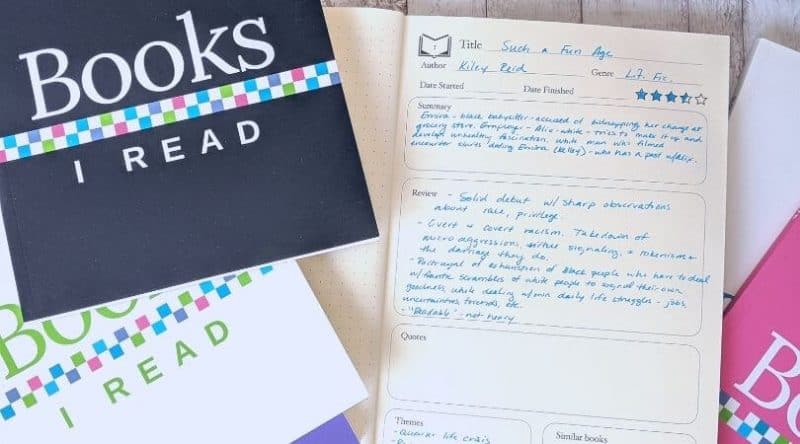 Books
I READ
Books
I READ
Title Such a Fun Age
Author Kiley Reid Genre L.F. Fic.
Date Started Date Finished
Summary
Emira - black babysitter - accused of kidnapping her charge at
grocery store. Employer - Alix - white - tries to make it up and
develops unhealthy fascination. White man who filmed
encounter starts dating Emira (Kelley) - who has a past w/Alix.
Review - Solid debut w/ sharp observations
about race, privilege.
- Overt + covert racism. Takedown of
microaggressions, virtue signaling, + tokenism +
the damage they do.
- Portrayal of exhaustion of Black people who have to deal
w/frantic scrambles of white people to signal their own
goodness while dealing w/own daily life struggles - jobs,
uncertainties, friends, etc.
- "Readable" - not heavy
Quotes
Themes
- Quarter life crisis
Similar books
Bo
I R